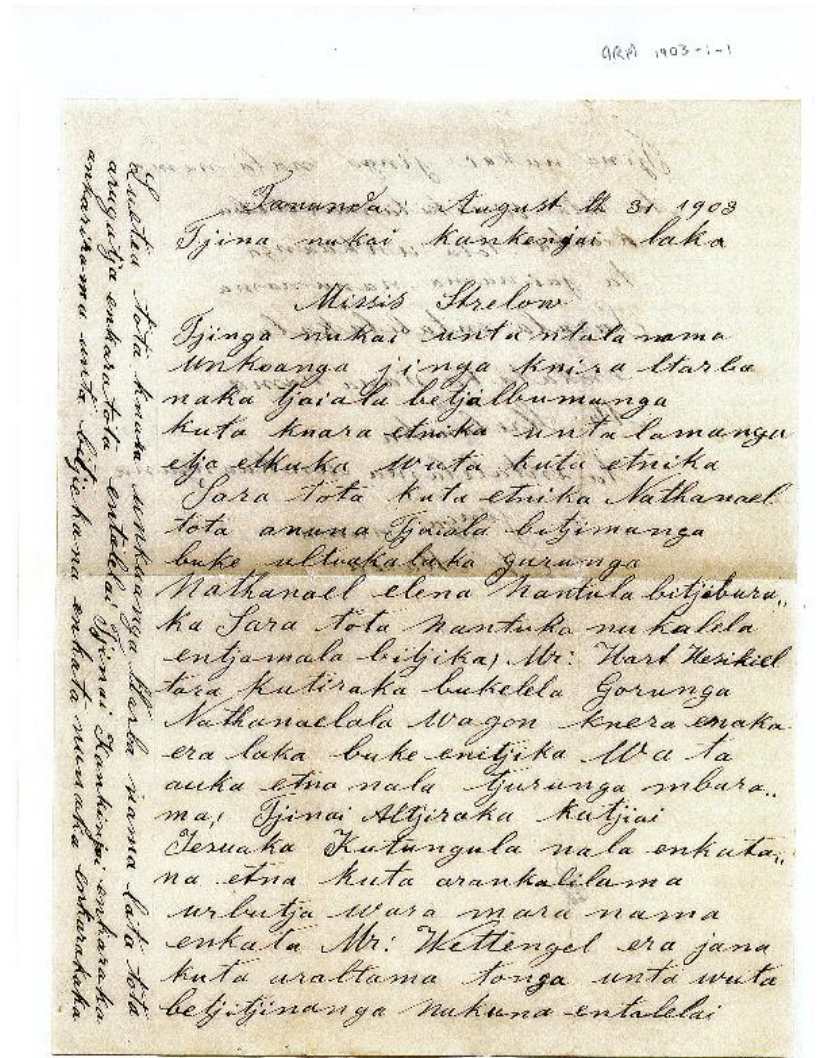 ARA 1903-1-1
Tanunda August th 31 1903
Tjina nukai kankenjai laka
Missis Strelow
Tjinga nukai unta ntala nama
Unkoanga jinga knira ltarba
naka tjaiala betjalbumanga
kuta knara etnika unta lamanga
etja elkuka wuta kuta etnika
Sara tota kuta etnika Nathanael
tota anuna Tjaiala bitjimanga
buke ultuakalaka gurunga
Nathanael elena Nantula bitjibura„
ka Sara tota Nantuka nukalela
entjamala bitjika, Mr: Hart Hesikiel
tara kutiraka bukelela Gorunga
Nathanaelala Wagon knera enaka
era laka buke enitjika Wu ta
auka etna nala gurunga mbara„
ma, Tjinai Altjiraka kutjiai
Jesuaka Kutungula nala enkata„
na etna kuta arankalilama
urbutja wara mara nama
enkata Mr: Wettengel era jana
kuta uraltama tonga unta wuta
betjitjinanga nukuna entalelai
Luetia tota knara unkuanga ltarba nama lata tota
arugutja enkara tota entalelai Tjinai Kankinjai enkaraka
ankarirama unta bitjikana enkata nunaka enkarakaka